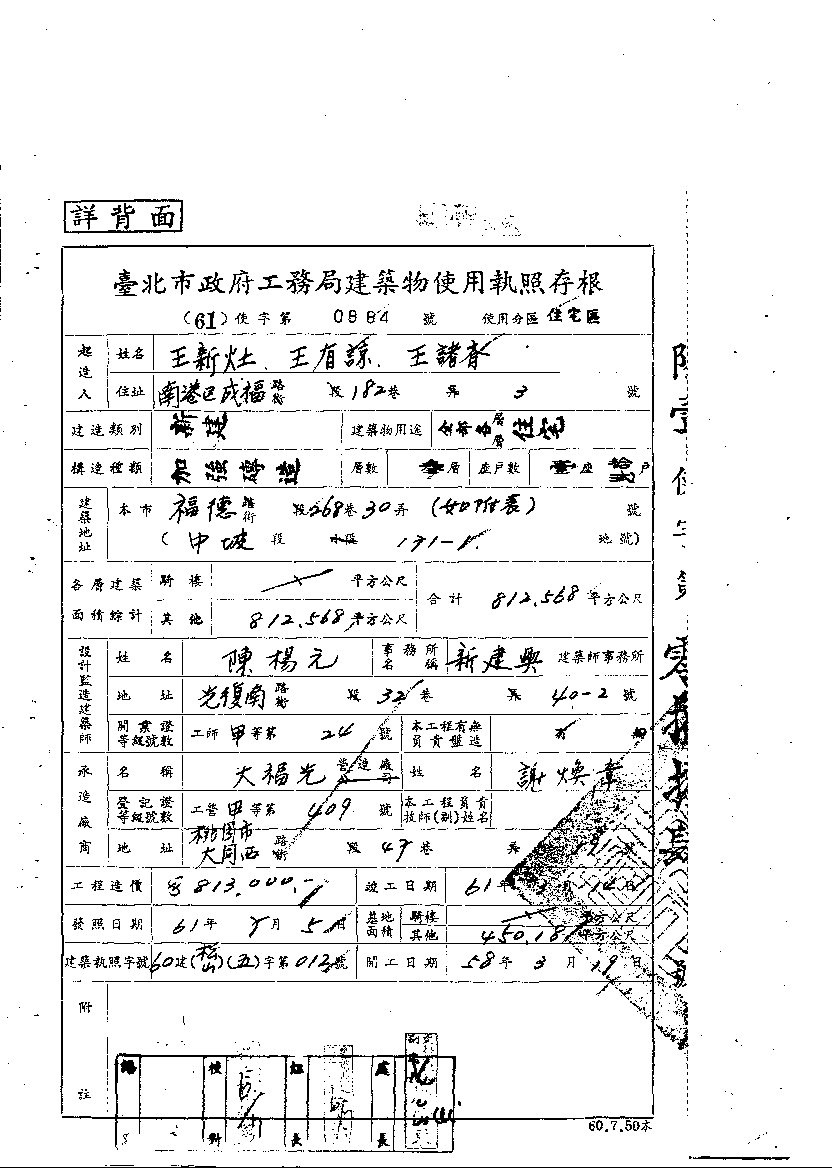 詳背面
臺北市政府工務局建築物使用執照存根
(61) 使字第 0884 號 使用分區 住宅區
起造人 姓名 王新灶、王有諒、王諸春
住址 南港區成福路街 段182巷 弄 3 號
建造類別 新建 建築物用途 全部各層住宅
構造種類 加強磚造 層數 層 座戶數 座 戶
建築地址 本市 福德路街 段268巷30弄 (如附表) 號
(中坡 段 小區 131-1 地號)
各層建築面積綜計 騎樓 平方公尺 合計 812.568 平方公尺
其他 812.568 平方公尺
設計監造建築師 姓名 陳楊元 事務所名稱 新建興 建築師事務所
地址 光復南路街 段 32 巷 弄 40-2 號
開業證等級號數 工師甲等第 24 號 本工程有無負責監造 有
承造廠商 名稱 大福光 營造廠 姓名 謝煥章
登記證等級號數 工營甲等第 409 號 本工程負責技師(副)姓名
地址 桃園市大同西路街 段 47 巷 弄 19 號
工程造價 813,000.- 竣工日期 61年 3月 14日
發照日期 61年 月 5日 基地面積 騎樓 平方公尺
其他 450.18 平方公尺
建築執照字號 60建(松山)(五)字第 012 號 開工日期 58年 3月 19日
附註
長 長
60.7.50本